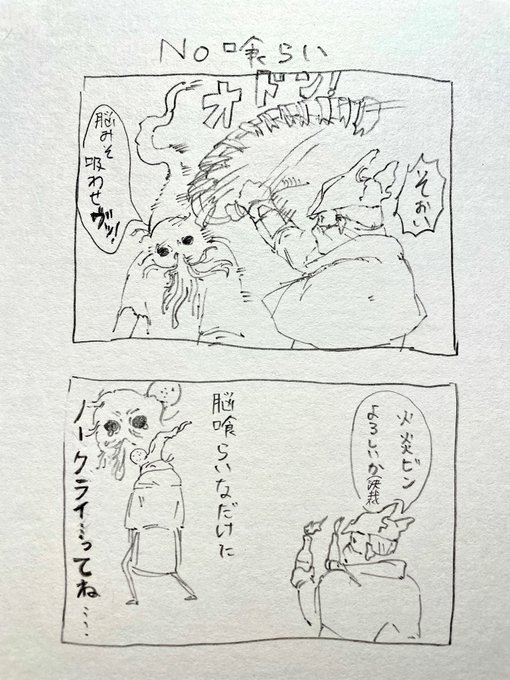 NO喰らい
オドン!
そおい
脳みそ
吸わせ
ヴッ!
火炎ビン
よろしいか(決裁
脳喰らいなだけに
ノークライ…ってね……